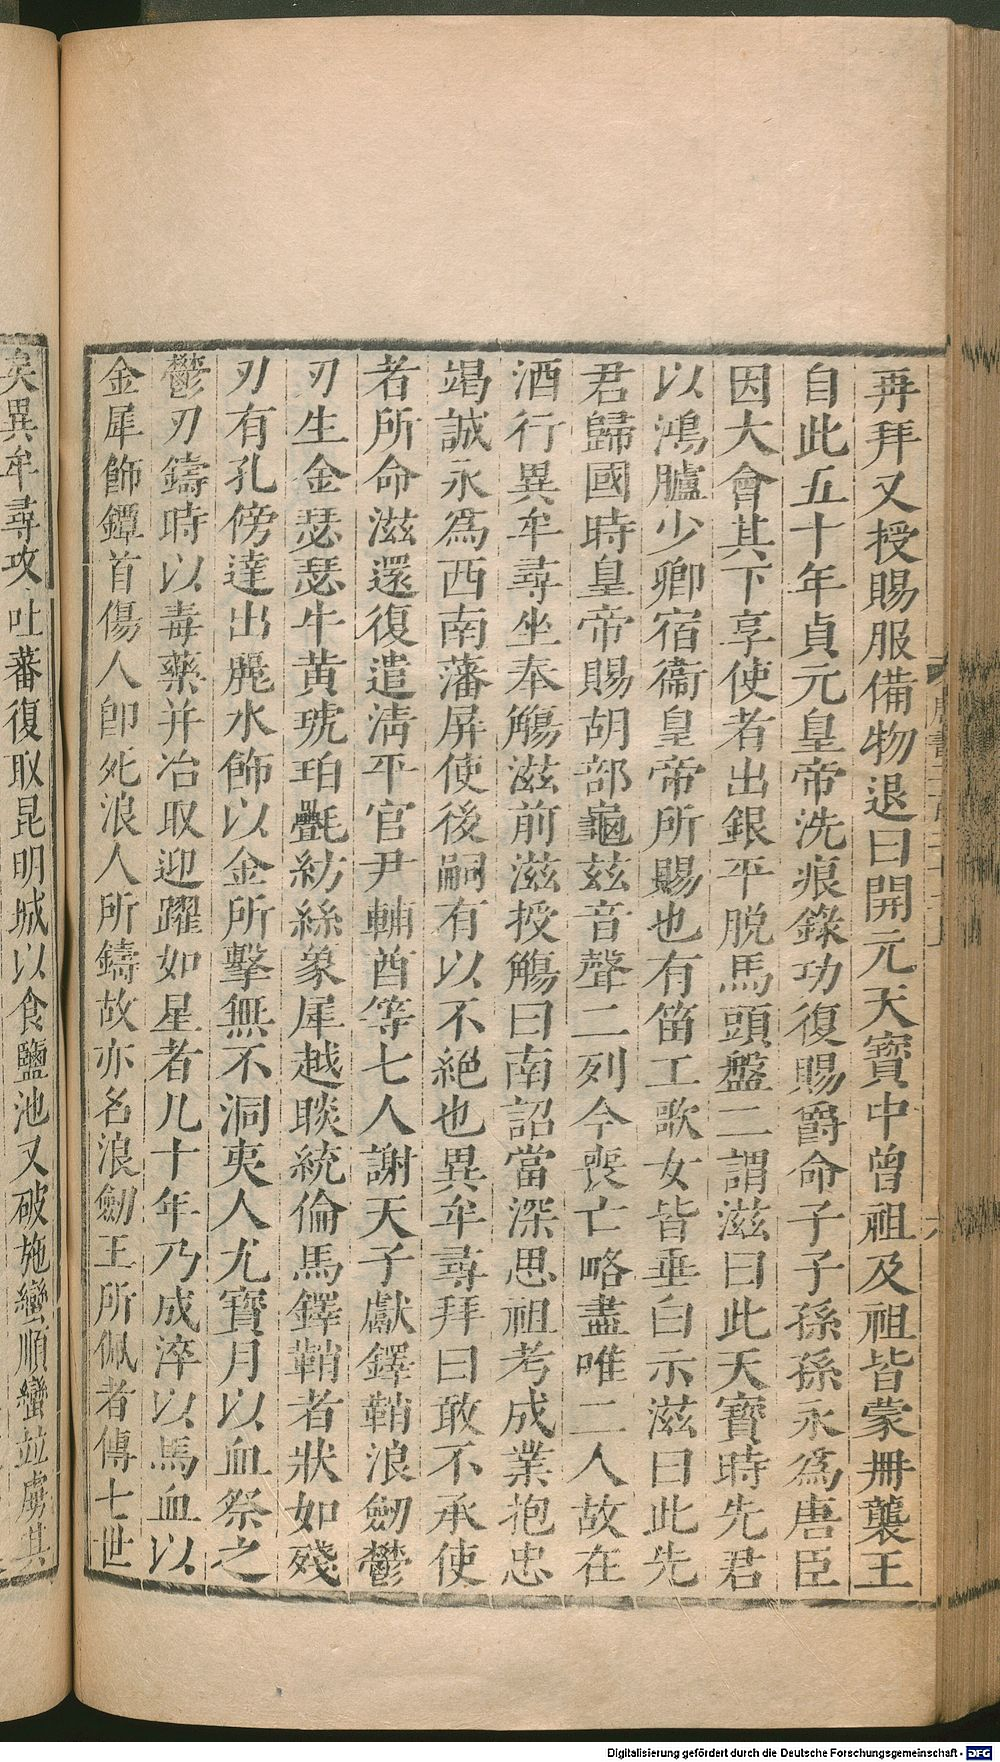 再拜又授賜服備物退曰開元天寶中曾祖及祖皆蒙冊襲王
自此五十年貞元皇帝洗痕錄功復賜爵命子子孫孫永爲唐臣
因大會其下享使者出銀平脱馬頭盤二謂滋曰此天寶時先君
以鴻臚少卿宿衞皇帝所賜也有笛工歌女皆垂白示滋曰此先
君歸國時皇帝賜胡部龜兹音聲二列今喪亡略盡唯二人故在
酒行異牟尋坐奉觴滋前滋授觴曰南詔當深思祖考成業抱忠
竭誠永爲西南藩屏使後嗣有以不絶也異牟尋拜曰敢不承使
者所命滋還復遣淸平官尹輔酋等七人謝天子獻鐸鞘浪劒鬱
刃生金瑟瑟牛黃琥珀㲲紡絲象犀越睒統倫馬鐸鞘者狀如殘
刃有孔傍達出麗水飾以金所擊無不洞夷人尤寶月以血祭之
鬱刃鑄時以毒藥并冶取迎躍如星者凡十年乃成淬以馬血以
金犀飾鐔首傷人卽死浪人所鑄故亦名浪劒王所佩者傳七世
矣異牟尋攻吐蕃復取昆明城以食鹽池又破施蠻順蠻並虜其
Digitalisierung gefördert durch die Deutsche Forschungsgemeinschaft - DFG